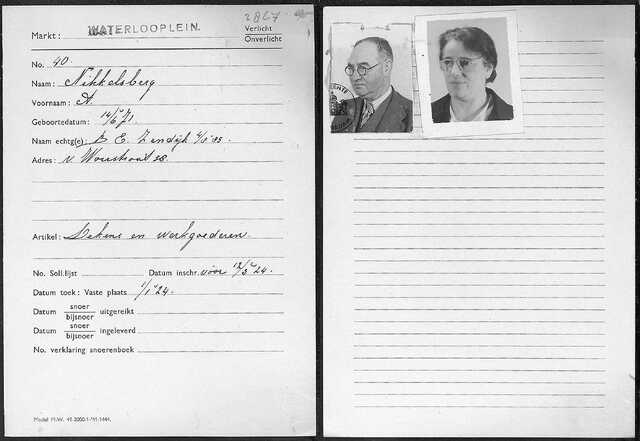 2867
Markt: WATERLOOPLEIN. Verlicht
Onverlicht
No. 40.
Naam: Nikkelsberg
Voornaam: A.
Geboortedatum: 14/6
Naam echtg(e): E. Zendijk
Adres: v. Woustraat
Artikel: Dekens en werkgoederen.
No. Soll:lijst Datum inschr. vóór 12/3 '24.
Datum toek: Vaste plaats 1/1 '24.
Datum snoer/bijsnoer uitgereikt
Datum snoer/bijsnoer ingeleverd
No. verklaring snoerenboek
Model M.W. 41 2000-1-'41-1444.